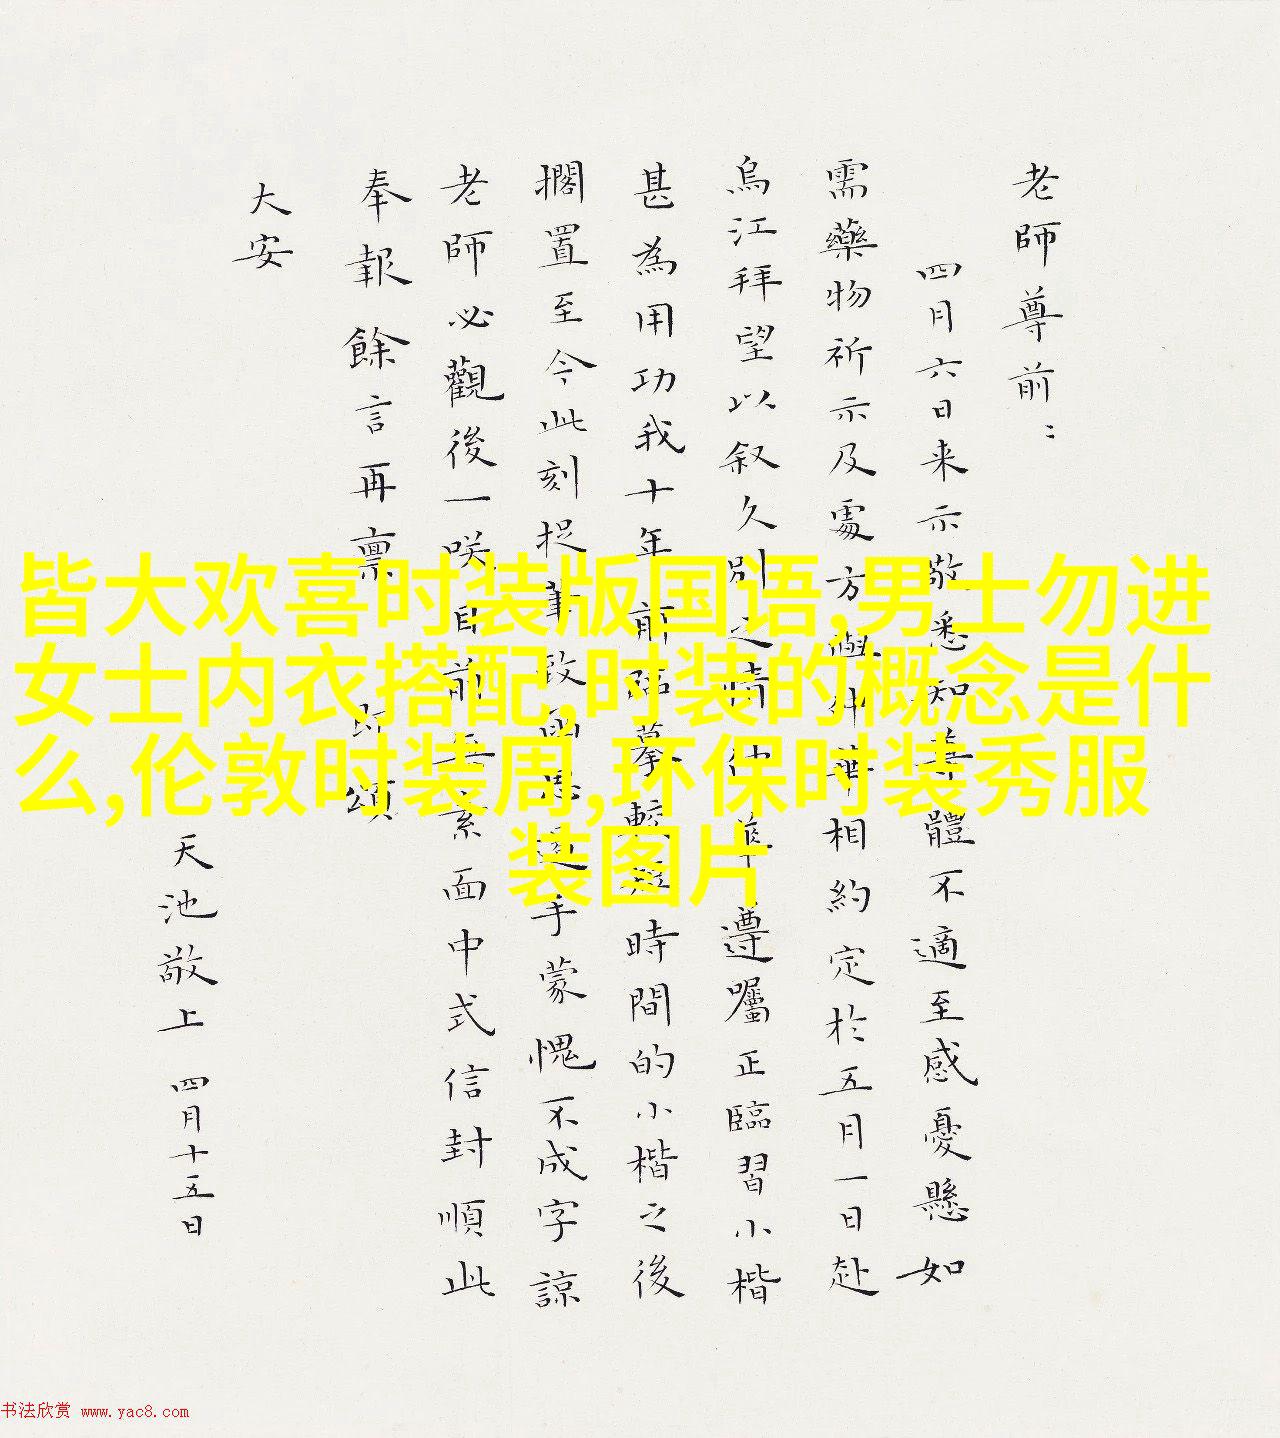 老師尊前：
四月六日来示敬悉知尊體不適至感憂懸如
需藥物祈示及處方與仲華相約定於五月一日赴
烏江拜望以叙久別之情仲華遵囑正臨習小楷
甚為用功我十年前臨摹較短時間的小楷之後
擱置至今此刻捉筆致函忽遽手蒙愧不成字諒
老師必觀後一咲目前無素面中式信封順此
奉報餘言再禀即頌
大安
天池敬上 四月十五日
皆大欢喜时装版国语,男士勿进
女士内衣搭配,时装的概念是什
么,伦敦时装周,环保时装秀服
装图片
书法欣赏 www.yac8.com